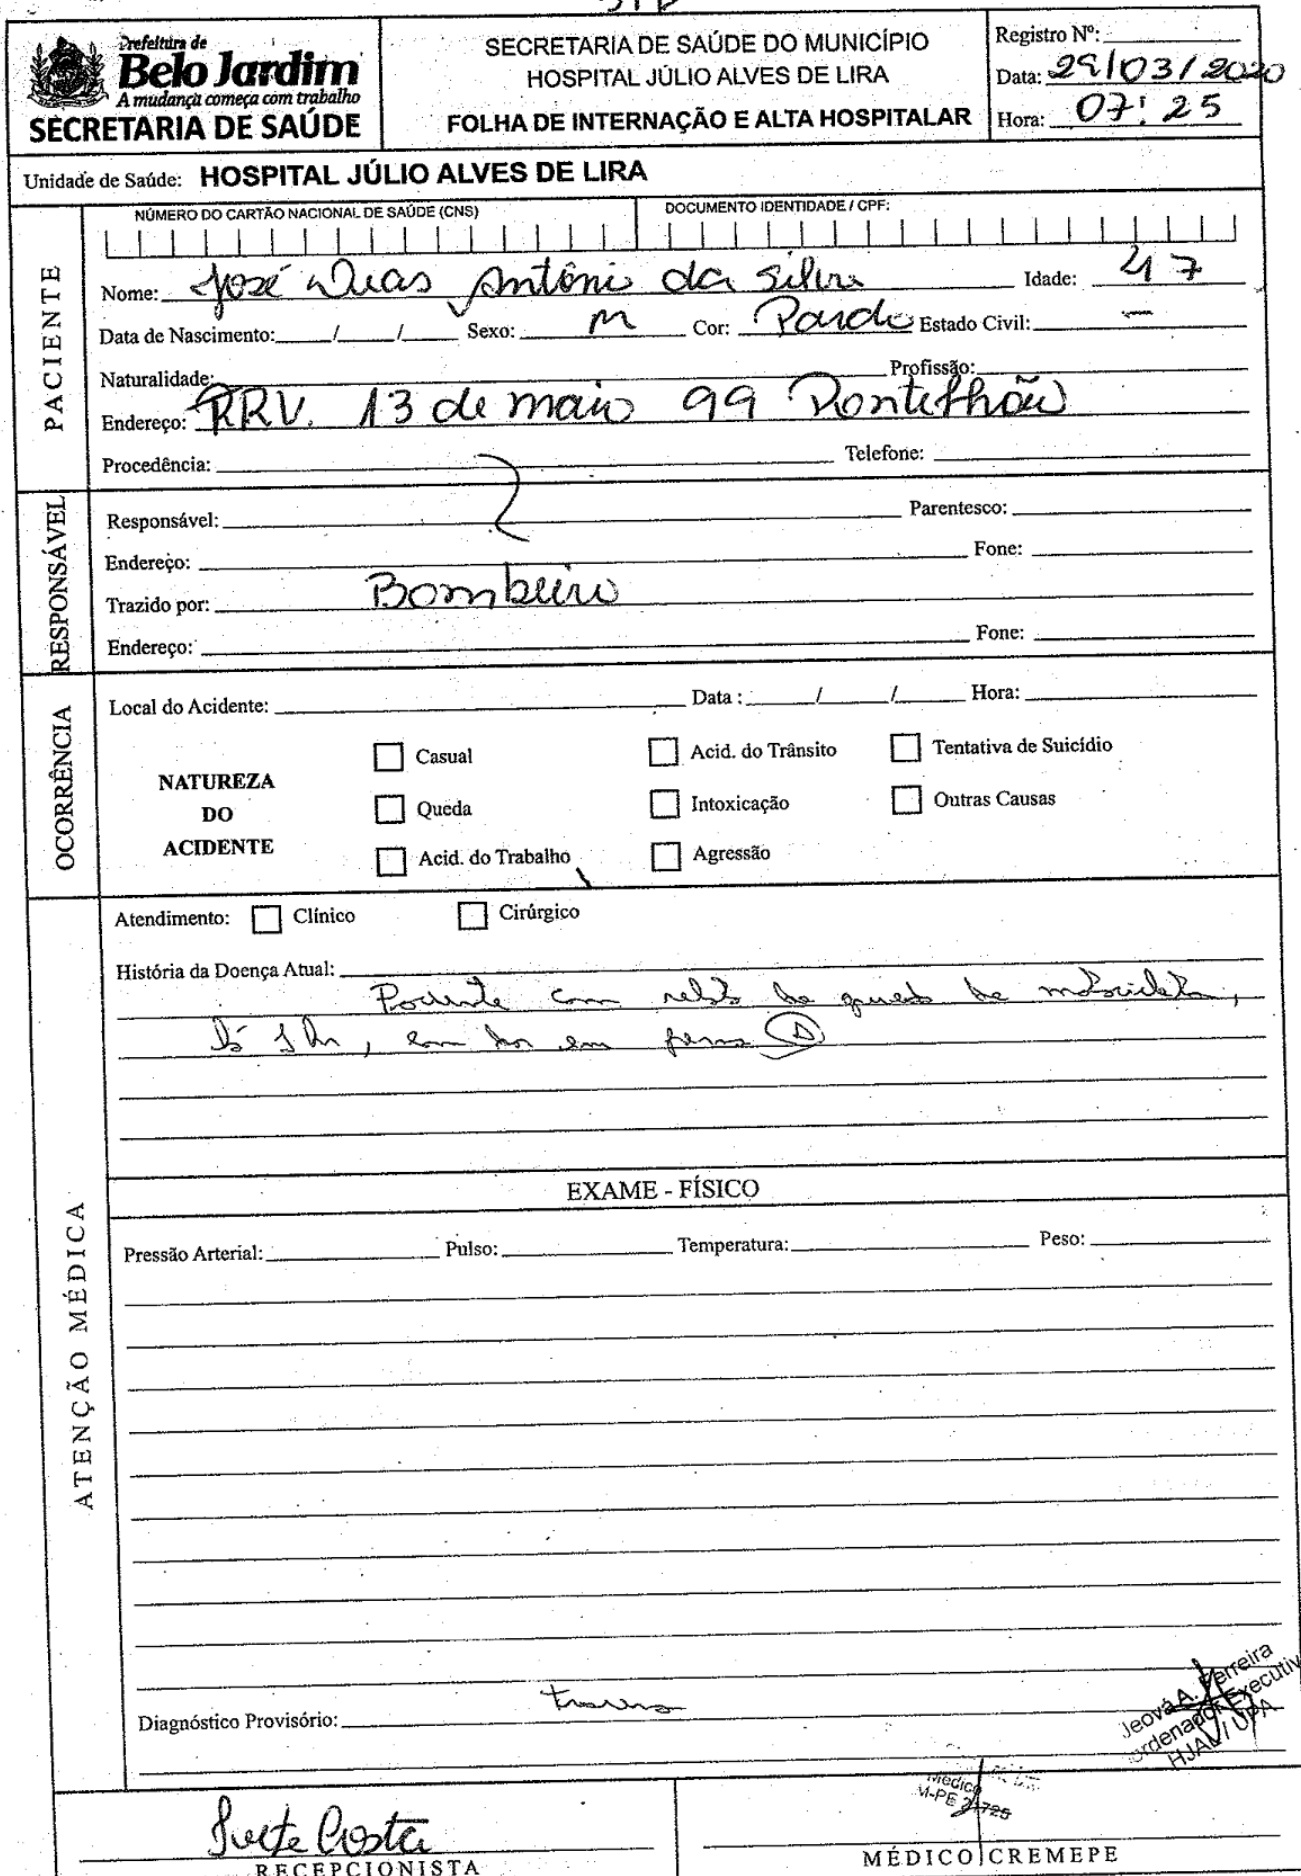 Prefeitura de
Belo Jardim
A mudança começa com trabalho
SECRETARIA DE SAÚDE
SECRETARIA DE SAÚDE DO MUNICÍPIO
HOSPITAL JÚLIO ALVES DE LIRA
FOLHA DE INTERNAÇÃO E ALTA HOSPITALAR
Registro Nº:
Data: 29/03/2020
Hora: 07:25
Unidade de Saúde: HOSPITAL JÚLIO ALVES DE LIRA
PACIENTE
NÚMERO DO CARTÃO NACIONAL DE SAÚDE (CNS) DOCUMENTO IDENTIDADE / CPF:
Nome: José Antônio da Silva Idade: 47
Data de Nascimento: / / Sexo: M Cor: Pardo Estado Civil: —
Naturalidade: Profissão:
Endereço: RRV. 13 de maio 99
Procedência: Telefone:
RESPONSÁVEL
Responsável: Parentesco:
Endereço: Fone:
Trazido por: Bombeiro
Endereço: Fone:
OCORRÊNCIA
Local do Acidente: Data : / / Hora:
NATUREZA DO ACIDENTE
Casual Acid. do Trânsito Tentativa de Suicídio
Queda Intoxicação Outras Causas
Acid. do Trabalho Agressão
ATENÇÃO MÉDICA
Atendimento: Clínico Cirúrgico
História da Doença Atual:
Paciente com relato de queda de motocicleta,
há 1h, com dor em perna D
EXAME - FÍSICO
Pressão Arterial: Pulso: Temperatura: Peso:
Diagnóstico Provisório: trauma
Jeová A. Ferreira
HJAL / UPA
Médico
Costa
RECEPCIONISTA
MÉDICO CREMEPE